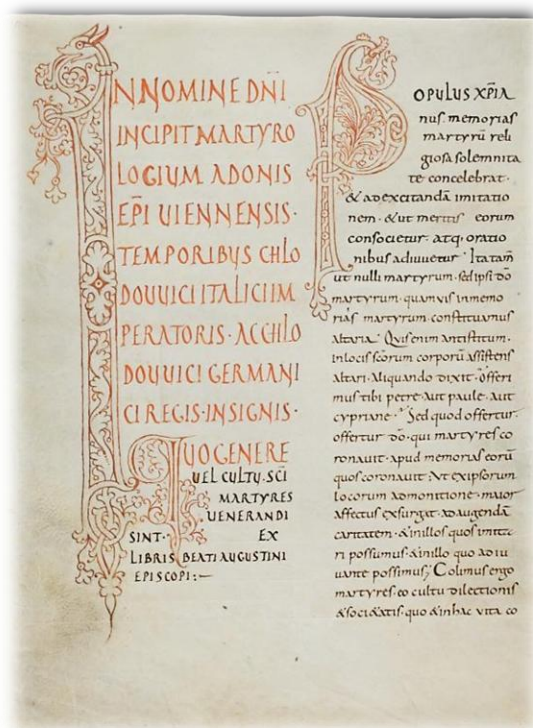 IN NOMINE DNI
INCIPIT MARTYRO
LOGIUM ADONIS
EPI UIENNENSIS·
TEMPORIBUS CHLO
DOUUICI ITALICI IM
PERATORIS· AC CHLO
DOUUICI GERMANI
CI REGIS· INSIGNIS·
QUO GENERE
UEL CULTU· SCI
MARTYRES
UENERANDI
SINT· EX
LIBRIS BEATI AUGUSTINI
EPISCOPI:—
POPULUS XPIA
nus· memorias
martyrū reli
giosa solemnita
te concelebrat·
& ad excitandā imitatio
nem· & ut meritis eorum
consocietur· atq· oratio
nibus adiuuetur· Ita tam̄
ut nulli martyrum· sed ipsi dō
martyrum· quamuis in memo
rias martyrum· constituamus
altaria· Quis enim antistitum·
in locis scorum corporū assistens
altari· aliquando dixit· offeri
mus tibi petre· aut paule· aut
cypriane· Sed quod offertur·
offertur dō· qui martyres co
ronauit· apud memorias eorū
quos coronauit· Ut ex ipsorum
locorum admonitione· maior
affectus exsurgat· ad augendā
caritatem· & in illos quos imita
ri possumus· & in illo quo adiu
uante possimus; Colimus ergo
martyres eo cultu dilectionis
& soci&atis· quo & in hac uita co